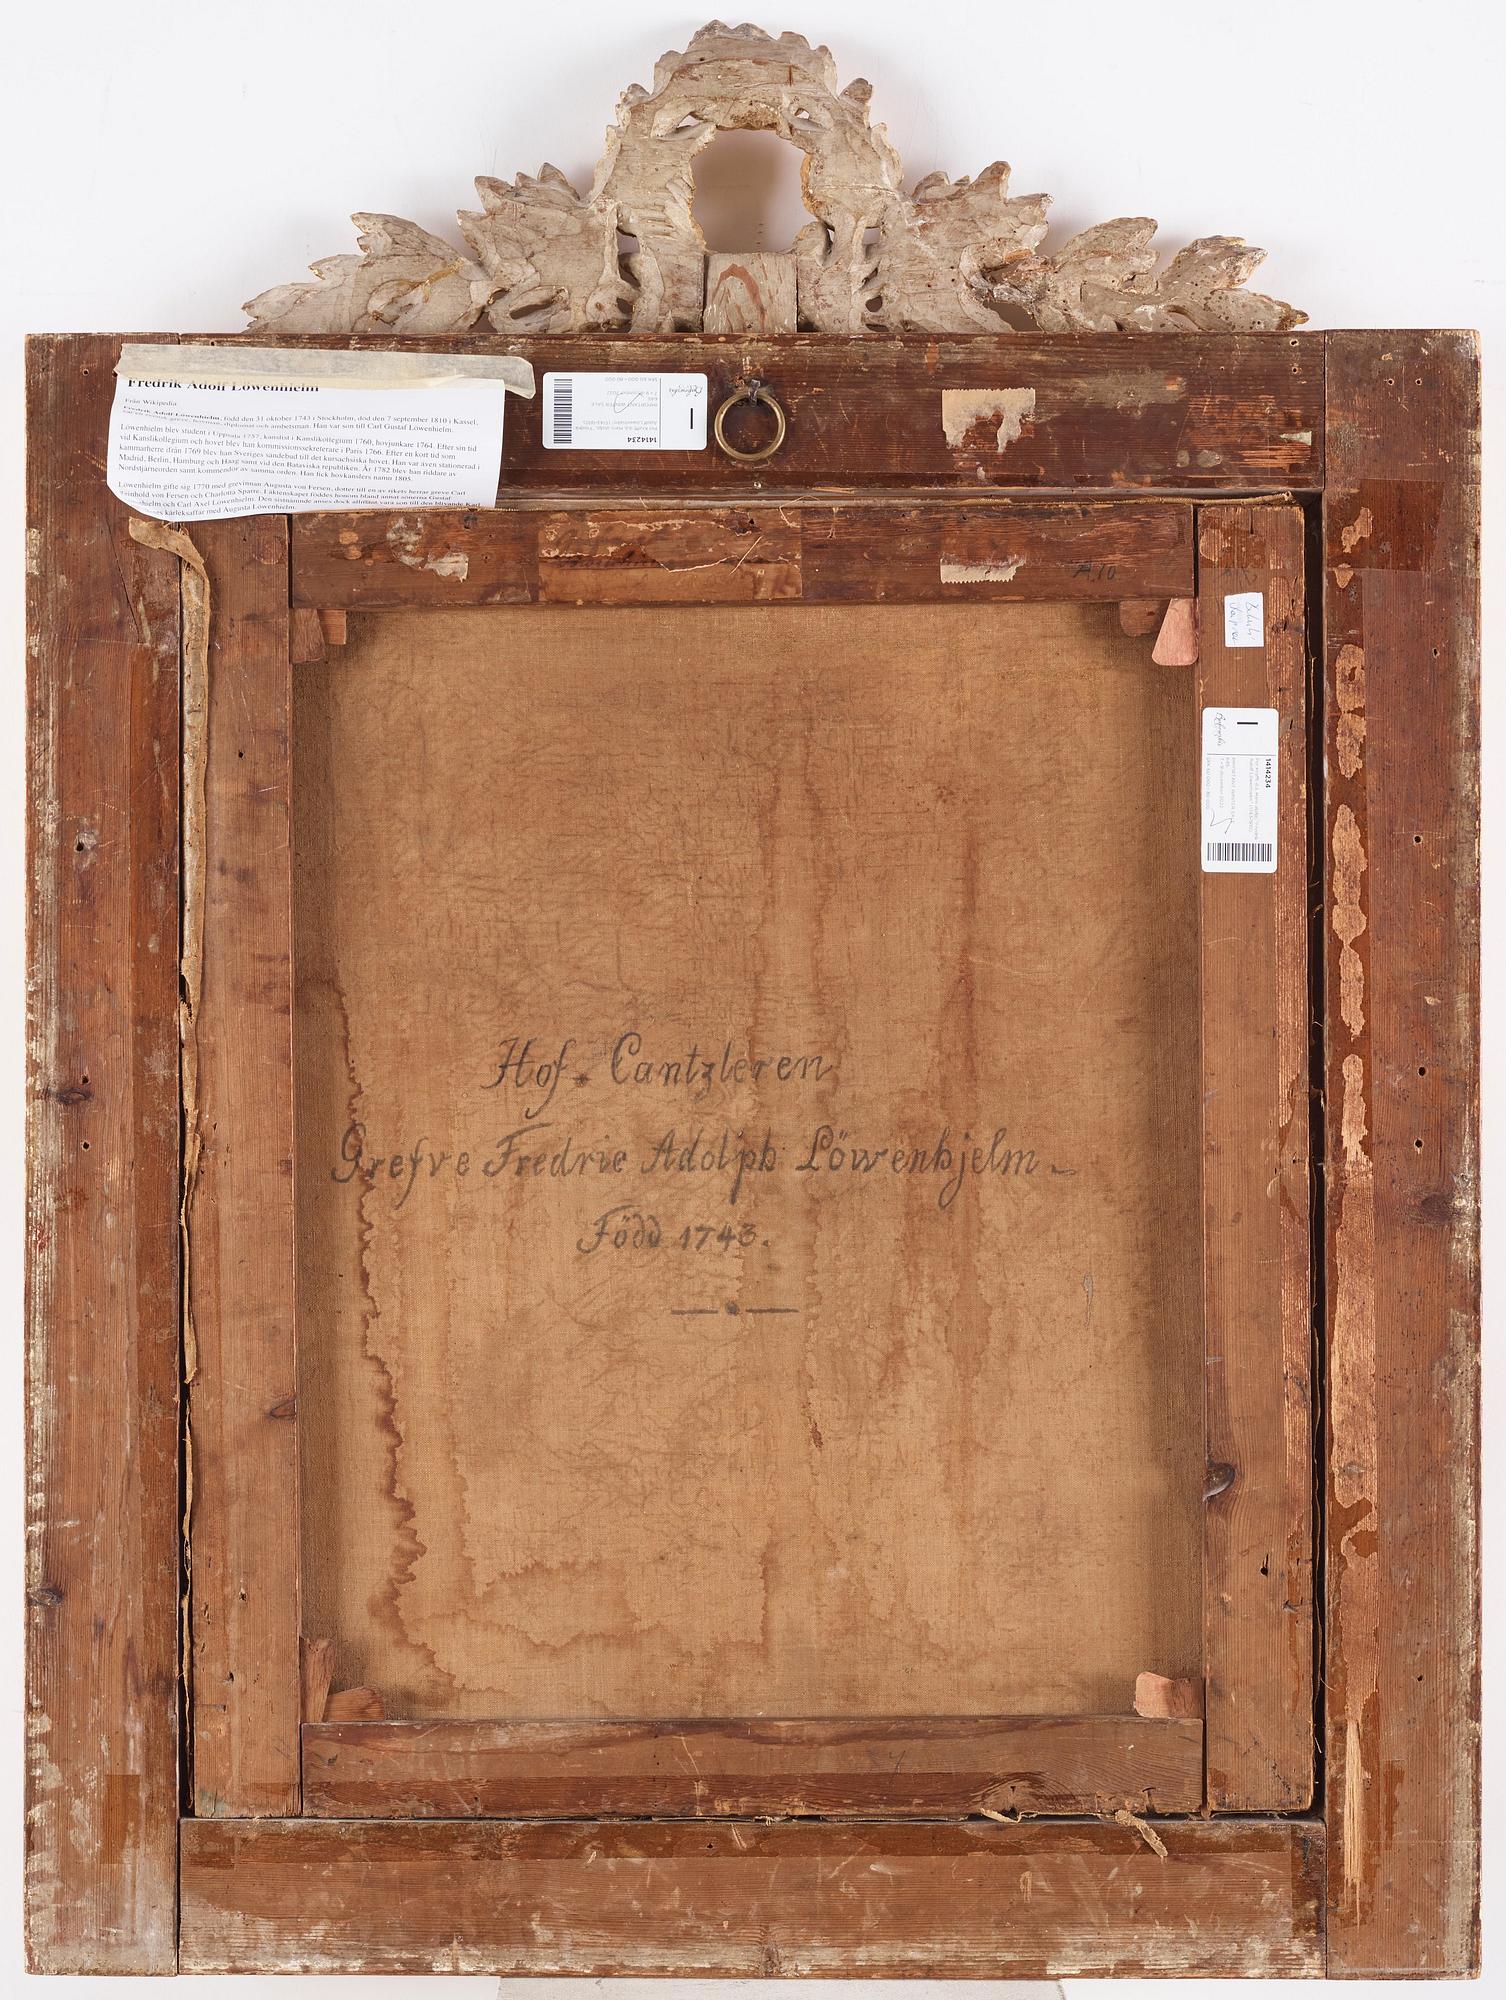 Fredrik Adolf Löwenhielm
Från Wikipedia
Fredrik Adolf Löwenhielm, född den 31 oktober 1743 i Stockholm, död den 7 september 1810 i Kassel,
var en svensk greve, hovman, diplomat och ämbetsman. Han var son till Carl Gustaf Löwenhielm.
Löwenhielm blev student i Uppsala 1757, kanslist i Kanslikollegium 1760, hovjunkare 1764. Efter sin tid
vid Kanslikollegium och hovet blev han kommissionssekreterare i Paris 1766. Efter en kort tid som
kammarherre ifrån 1769 blev han Sveriges sändebud till det kursachsiska hovet. Han var även stationerad i
Madrid, Berlin, Hamburg och Haag samt vid den Bataviska republiken. År 1782 blev han riddare av
Nordstjärneorden samt kommendör av samma orden. Han fick hovkanslers namn 1805.
Löwenhielm gifte sig 1770 med grevinnan Augusta von Fersen, dotter till en av rikets herrar greve Carl
Reinhold von Fersen och Charlotta Sparre. I äktenskapet föddes honom bland annat sönerna Gustaf
Löwenhielm och Carl Axel Löwenhielm. Den sistnämnde anses dock allmänt vara son till den blivande Karl
kärleksaffär med Augusta Löwenhielm.
1414234
IMPORTANT WINTER SALE
645
7 – 9 december 2022
SEK 60 000 – 80 000
A.10
1414234
IMPORTANT WINTER SALE
645
7 – 9 december 2022
SEK 60 000 – 80 000
Hof. Cantzleren
Grefve Fredric Adolph Löwenhjelm.
Född 1743.